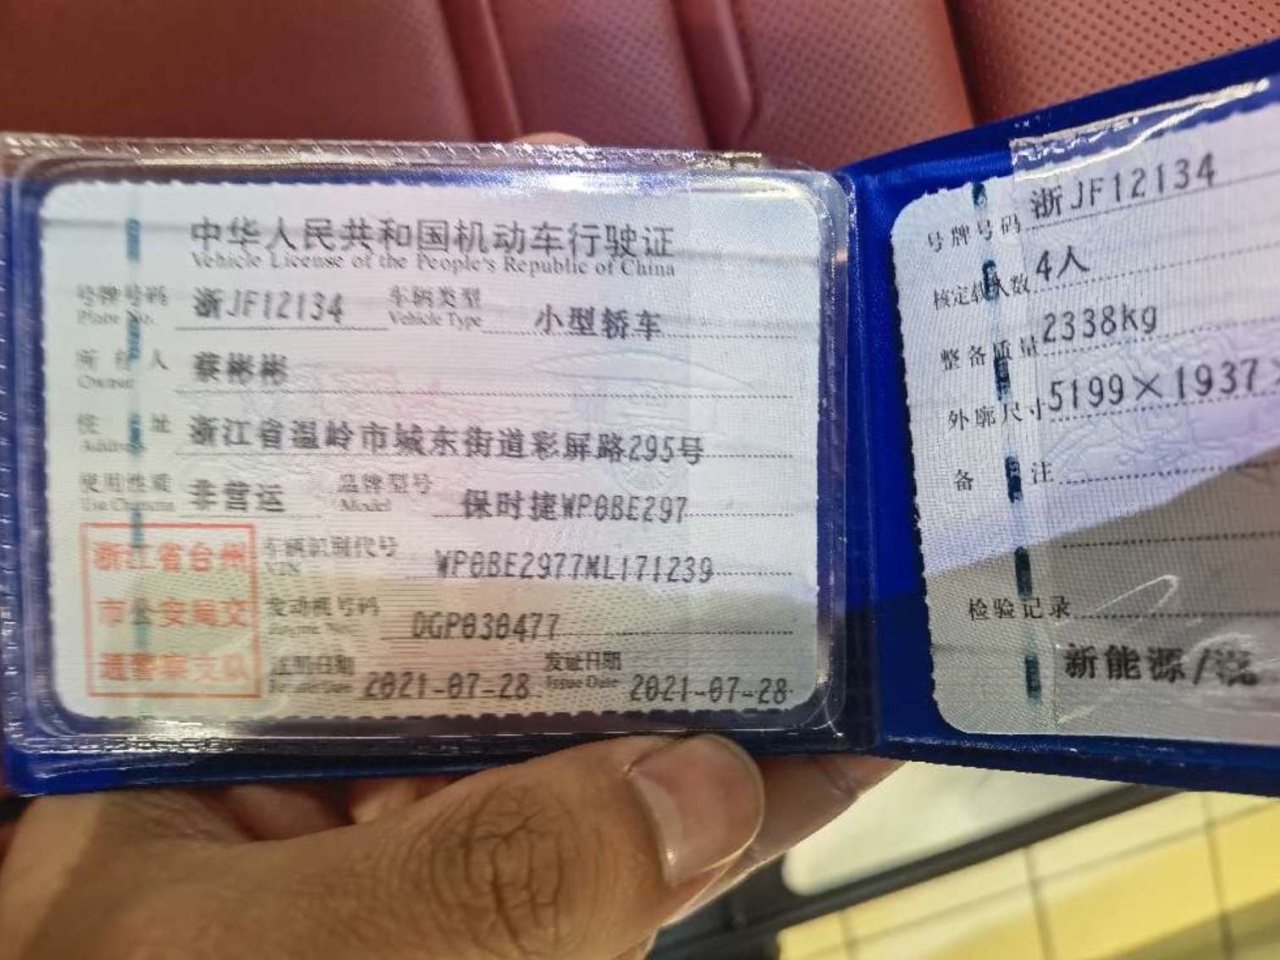 中华人民共和国机动车行驶证
Vehicle License of the People's Republic of China
号牌号码 浙JF12134 车辆类型 小型轿车
Plate No. Vehicle Type
所有人 蔡彬彬
Owner
住址 浙江省温岭市城东街道彩屏路295号
Address
使用性质 非营运 品牌型号 保时捷WP0BE297
Use Character Model
浙江省台州
市公安局交
通警察支队
车辆识别代号 WP0BE2977ML171239
VIN
发动机号码 DGP030477
Engine No.
注册日期 2021-07-28 发证日期 2021-07-28
Issue Date
号牌号码 浙JF12134
核定载人数 4人
整备质量 2338kg
外廓尺寸 5199×1937×
备注
检验记录
新能源/